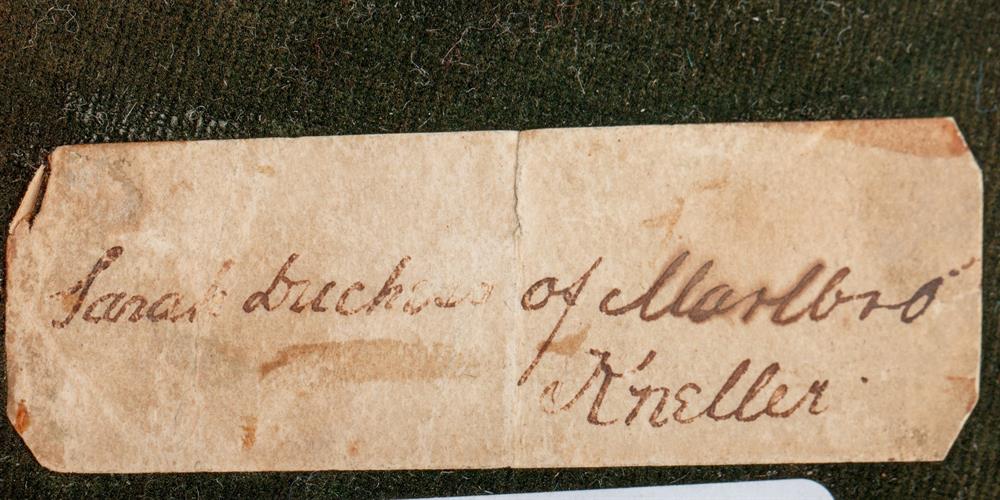 Sarah Duchess of Marlbro'
Kneller